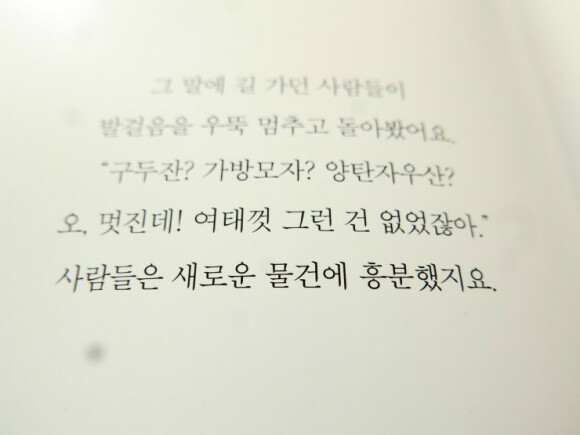 그 말에 길 가던 사람들이
발걸음을 우뚝 멈추고 돌아봤어요.
"구두잔? 가방모자? 양탄자우산?
오, 멋진데! 여태껏 그런 건 없었잖아."
사람들은 새로운 물건에 흥분했지요.